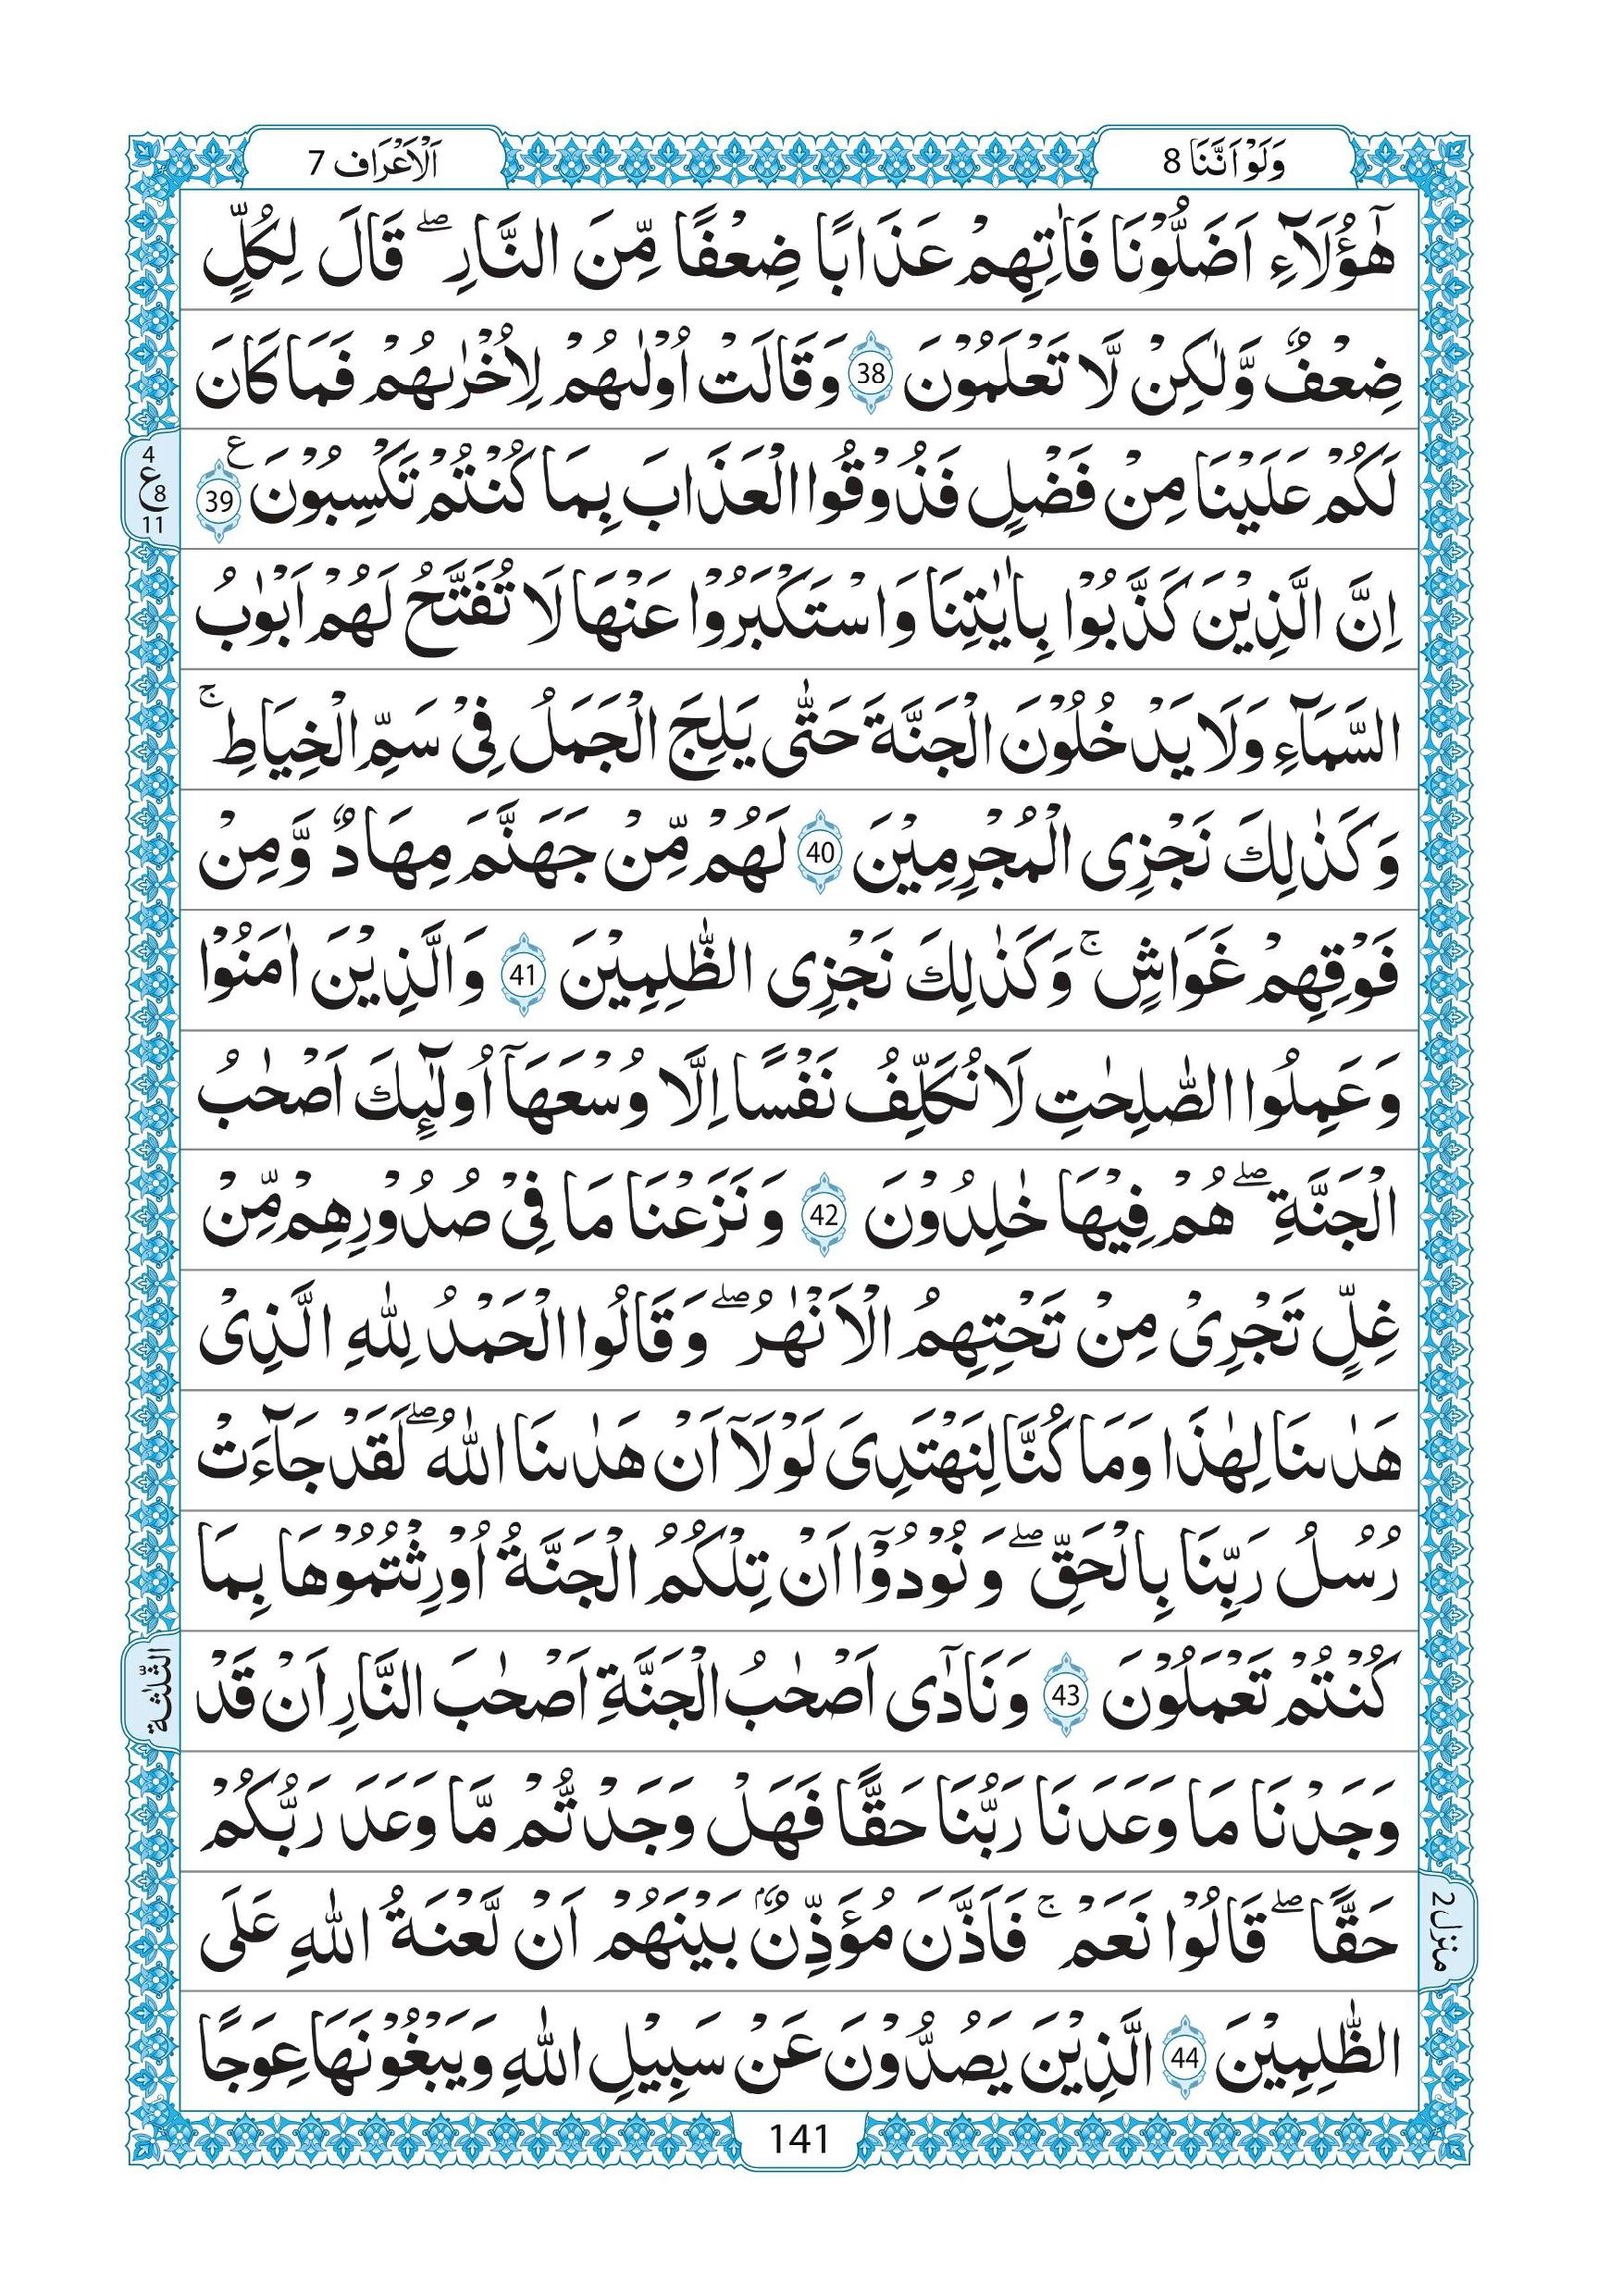 وَلَوْ اَنَّنَا 8
اَلْاَعْرَاف 7
هٰٓؤُلَآءِ اَضَلُّوْنَا فَاٰتِهِمْ عَذَابًا ضِعْفًا مِّنَ النَّارِ ۖ قَالَ لِكُلٍّ
ضِعْفٌ وَّلٰكِنْ لَّا تَعْلَمُوْنَ 38 وَقَالَتْ اُوْلٰىهُمْ لِاُخْرٰىهُمْ فَمَا كَانَ
لَكُمْ عَلَيْنَا مِنْ فَضْلٍ فَذُوْقُوا الْعَذَابَ بِمَا كُنْتُمْ تَكْسِبُوْنَ ع 39
4
ع 8
11
اِنَّ الَّذِيْنَ كَذَّبُوْا بِاٰيٰتِنَا وَاسْتَكْبَرُوْا عَنْهَا لَا تُفَتَّحُ لَهُمْ اَبْوٰبُ
السَّمَآءِ وَلَا يَدْخُلُوْنَ الْجَنَّةَ حَتّٰى يَلِجَ الْجَمَلُ فِىْ سَمِّ الْخِيَاطِ ۚ
وَكَذٰلِكَ نَجْزِى الْمُجْرِمِيْنَ 40 لَهُمْ مِّنْ جَهَنَّمَ مِهَادٌ وَّمِنْ
فَوْقِهِمْ غَوَاشٍ ۚ وَكَذٰلِكَ نَجْزِى الظّٰلِمِيْنَ 41 وَالَّذِيْنَ اٰمَنُوْا
وَعَمِلُوا الصّٰلِحٰتِ لَا نُكَلِّفُ نَفْسًا اِلَّا وُسْعَهَآ اُولٰٓئِكَ اَصْحٰبُ
الْجَنَّةِ ۖ هُمْ فِيْهَا خٰلِدُوْنَ 42 وَنَزَعْنَا مَا فِىْ صُدُوْرِهِمْ مِّنْ
غِلٍّ تَجْرِىْ مِنْ تَحْتِهِمُ الْاَنْهٰرُ ۖ وَقَالُوا الْحَمْدُ لِلّٰهِ الَّذِىْ
هَدٰىنَا لِهٰذَا وَمَا كُنَّا لِنَهْتَدِىَ لَوْلَآ اَنْ هَدٰىنَا اللّٰهُ ۖ لَقَدْ جَآءَتْ
رُسُلُ رَبِّنَا بِالْحَقِّ ۖ وَنُوْدُوْٓا اَنْ تِلْكُمُ الْجَنَّةُ اُوْرِثْتُمُوْهَا بِمَا
كُنْتُمْ تَعْمَلُوْنَ 43 وَنَادٰٓى اَصْحٰبُ الْجَنَّةِ اَصْحٰبَ النَّارِ اَنْ قَدْ
الثلثة
وَجَدْنَا مَا وَعَدَنَا رَبُّنَا حَقًّا فَهَلْ وَجَدْتُّمْ مَّا وَعَدَ رَبُّكُمْ
حَقًّا ۖ قَالُوْا نَعَمْ ۚ فَاَذَّنَ مُؤَذِّنٌۢ بَيْنَهُمْ اَنْ لَّعْنَةُ اللّٰهِ عَلَى
منزل 2
الظّٰلِمِيْنَ 44 الَّذِيْنَ يَصُدُّوْنَ عَنْ سَبِيْلِ اللّٰهِ وَيَبْغُوْنَهَا عِوَجًا
141